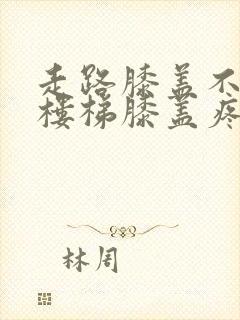 走路膝盖不
楼梯膝盖疼
林周